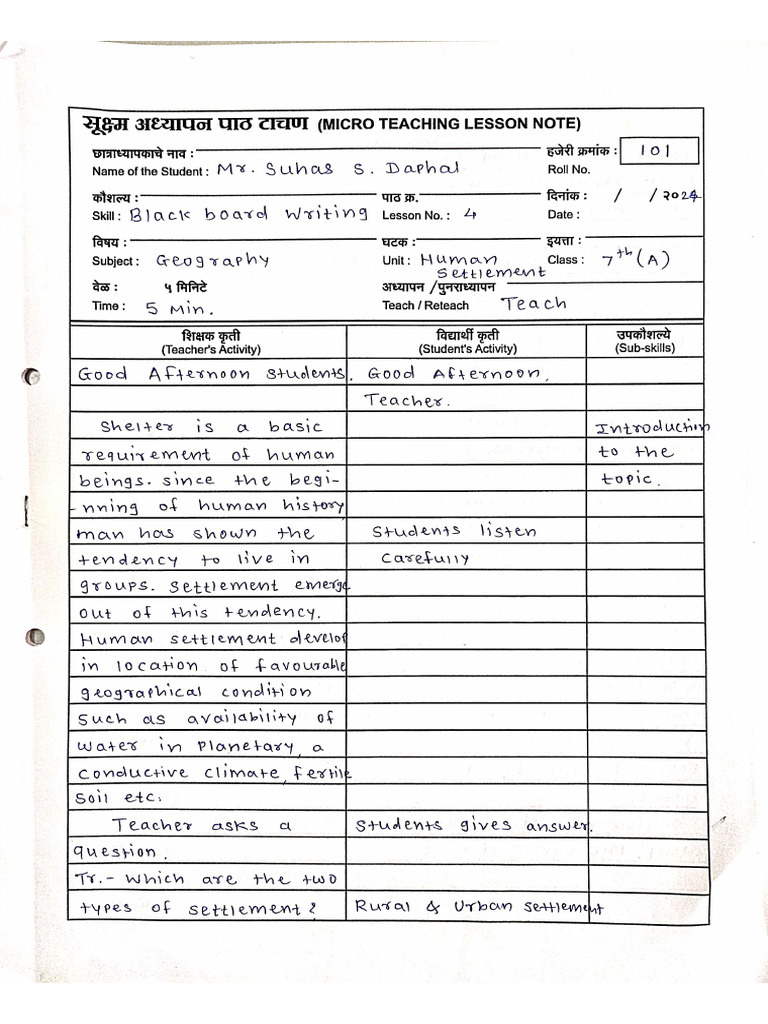 सूक्ष्म अध्यापन पाठ टाचण (MICRO TEACHING LESSON NOTE)
छात्राध्यापकाचे नाव :
Name of the Student : Mr. Suhas S. Daphal
हजेरी क्रमांक : 101
Roll No.
कौशल्य :
Skill : Black board Writing
पाठ क्र.
Lesson No. : 4
दिनांक : / / २०24
Date :
विषय :
Subject : Geography
घटक :
Unit : Human
Settlement
इयत्ता :
Class : 7th (A)
वेळ : ५ मिनिटे
Time : 5 Min.
अध्यापन / पुनराध्यापन
Teach / Reteach Teach
शिक्षक कृती
(Teacher's Activity)
विद्यार्थी कृती
(Student's Activity)
उपकौशल्ये
(Sub-skills)
Good Afternoon students. Good Afternoon,
Teacher.
Shelter is a basic Introduction
requirement of human to the
beings. since the begi- topic.
-nning of human history,
man has shown the Students listen
tendency to live in carefully
groups. Settlement emerge
out of this tendency.
Human settlement develop
in location of favourable
geographical condition
such as availability of
water in Planetary, a
conductive climate, fertile
soil etc.
Teacher asks a Students gives answer.
question.
Tr.- Which are the two
types of settlement? Rural & Urban settlement